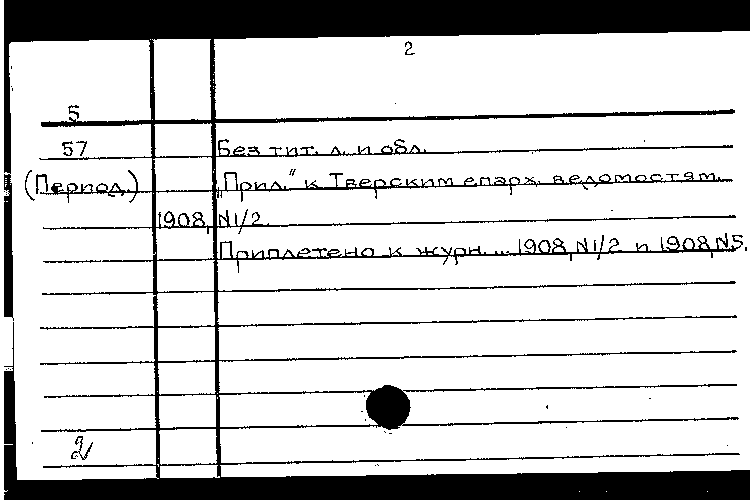 2
5
57 Без тит. л. и обл.
(Период.) „Прил.“ к Тверским епарх. ведомостям.
1908, №1/2.
Приплетено к журн. ... 1908, №1/2 и 1908, №5.
2